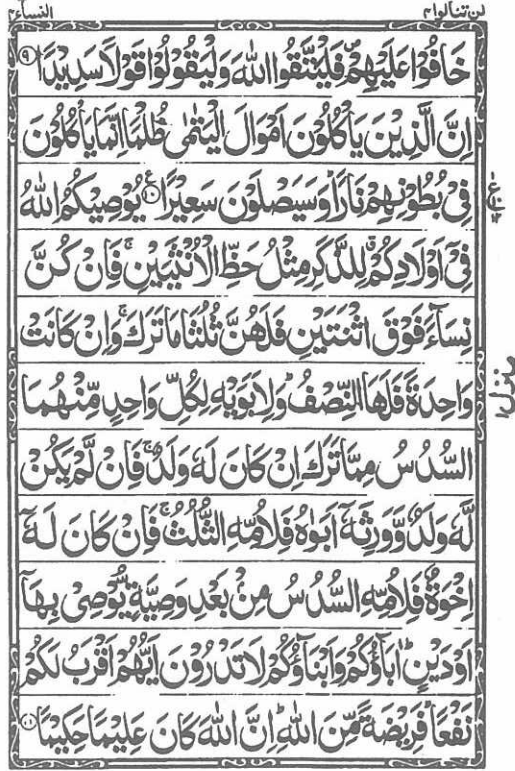 لن تنالوا ٤ النسآء ٤
خَافُوْا عَلَيْهِمْ ۪ فَلْيَتَّقُوا اللّٰهَ وَلْيَقُوْلُوْا قَوْلًا سَدِيْدًا ۹
اِنَّ الَّذِيْنَ يَاْكُلُوْنَ اَمْوَالَ الْيَتٰمٰى ظُلْمًا اِنَّمَا يَاْكُلُوْنَ
فِيْ بُطُوْنِهِمْ نَارًا ؕ وَسَيَصْلَوْنَ سَعِيْرًا ۱۰ يُوْصِيْكُمُ اللّٰهُ
فِيْۤ اَوْلَادِكُمْ ۗ لِلذَّكَرِ مِثْلُ حَظِّ الْاُنْثَيَيْنِ ۚ فَاِنْ كُنَّ
نِسَآءً فَوْقَ اثْنَتَيْنِ فَلَهُنَّ ثُلُثَا مَا تَرَكَ ۚ وَاِنْ كَانَتْ
وَاحِدَةً فَلَهَا النِّصْفُ ؕ وَلِاَبَوَيْهِ لِكُلِّ وَاحِدٍ مِّنْهُمَا
السُّدُسُ مِمَّا تَرَكَ اِنْ كَانَ لَهٗ وَلَدٌ ۚ فَاِنْ لَّمْ يَكُنْ
لَّهٗ وَلَدٌ وَّوَرِثَهٗۤ اَبَوٰهُ فَلِاُمِّهِ الثُّلُثُ ۚ فَاِنْ كَانَ لَهٗۤ
اِخْوَةٌ فَلِاُمِّهِ السُّدُسُ مِنْۢ بَعْدِ وَصِيَّةٍ يُّوْصِيْ بِهَاۤ
اَوْ دَيْنٍ ؕ اٰبَآؤُكُمْ وَاَبْنَآؤُكُمْ لَا تَدْرُوْنَ اَيُّهُمْ اَقْرَبُ لَكُمْ
نَفْعًا ؕ فَرِيْضَةً مِّنَ اللّٰهِ ؕ اِنَّ اللّٰهَ كَانَ عَلِيْمًا حَكِيْمًا ۱۱
منزل ۱